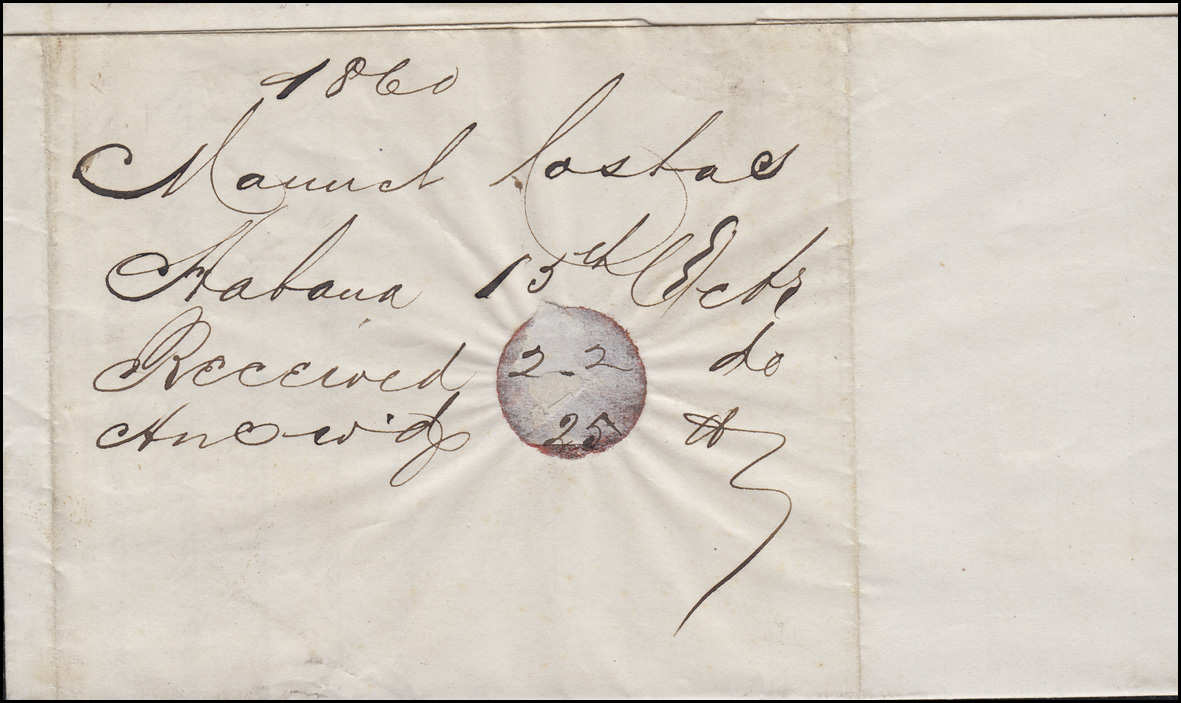 1860
Manuel Costas
Habana 15th Octr
Received 22 do
Answ'd 25 "